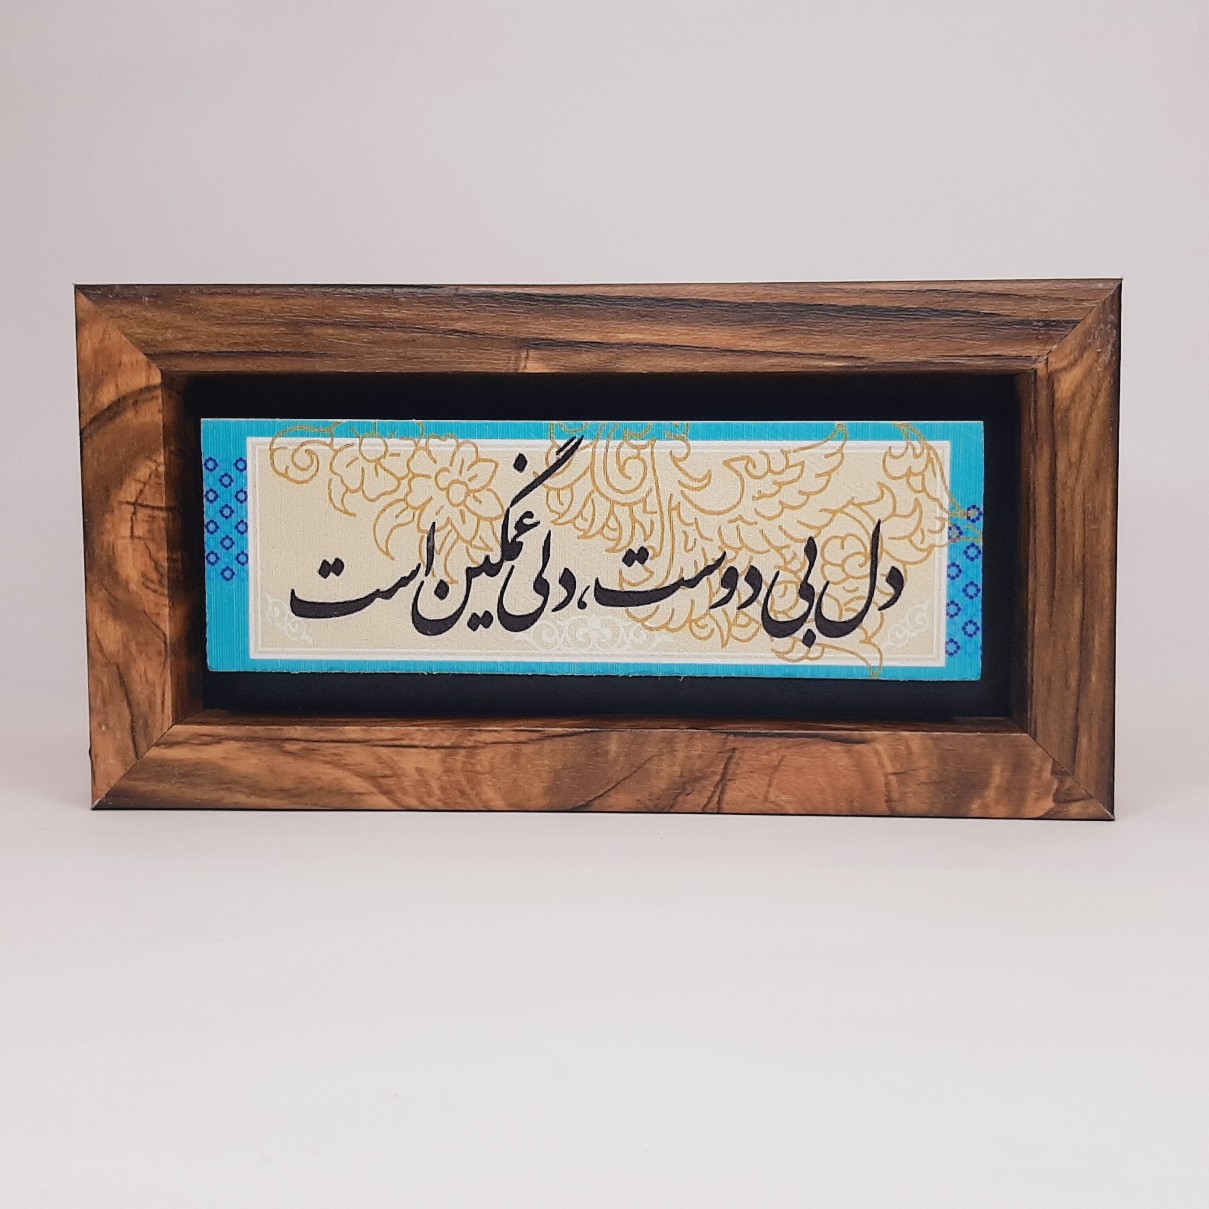 دل بی دوست، دلی غمگین است